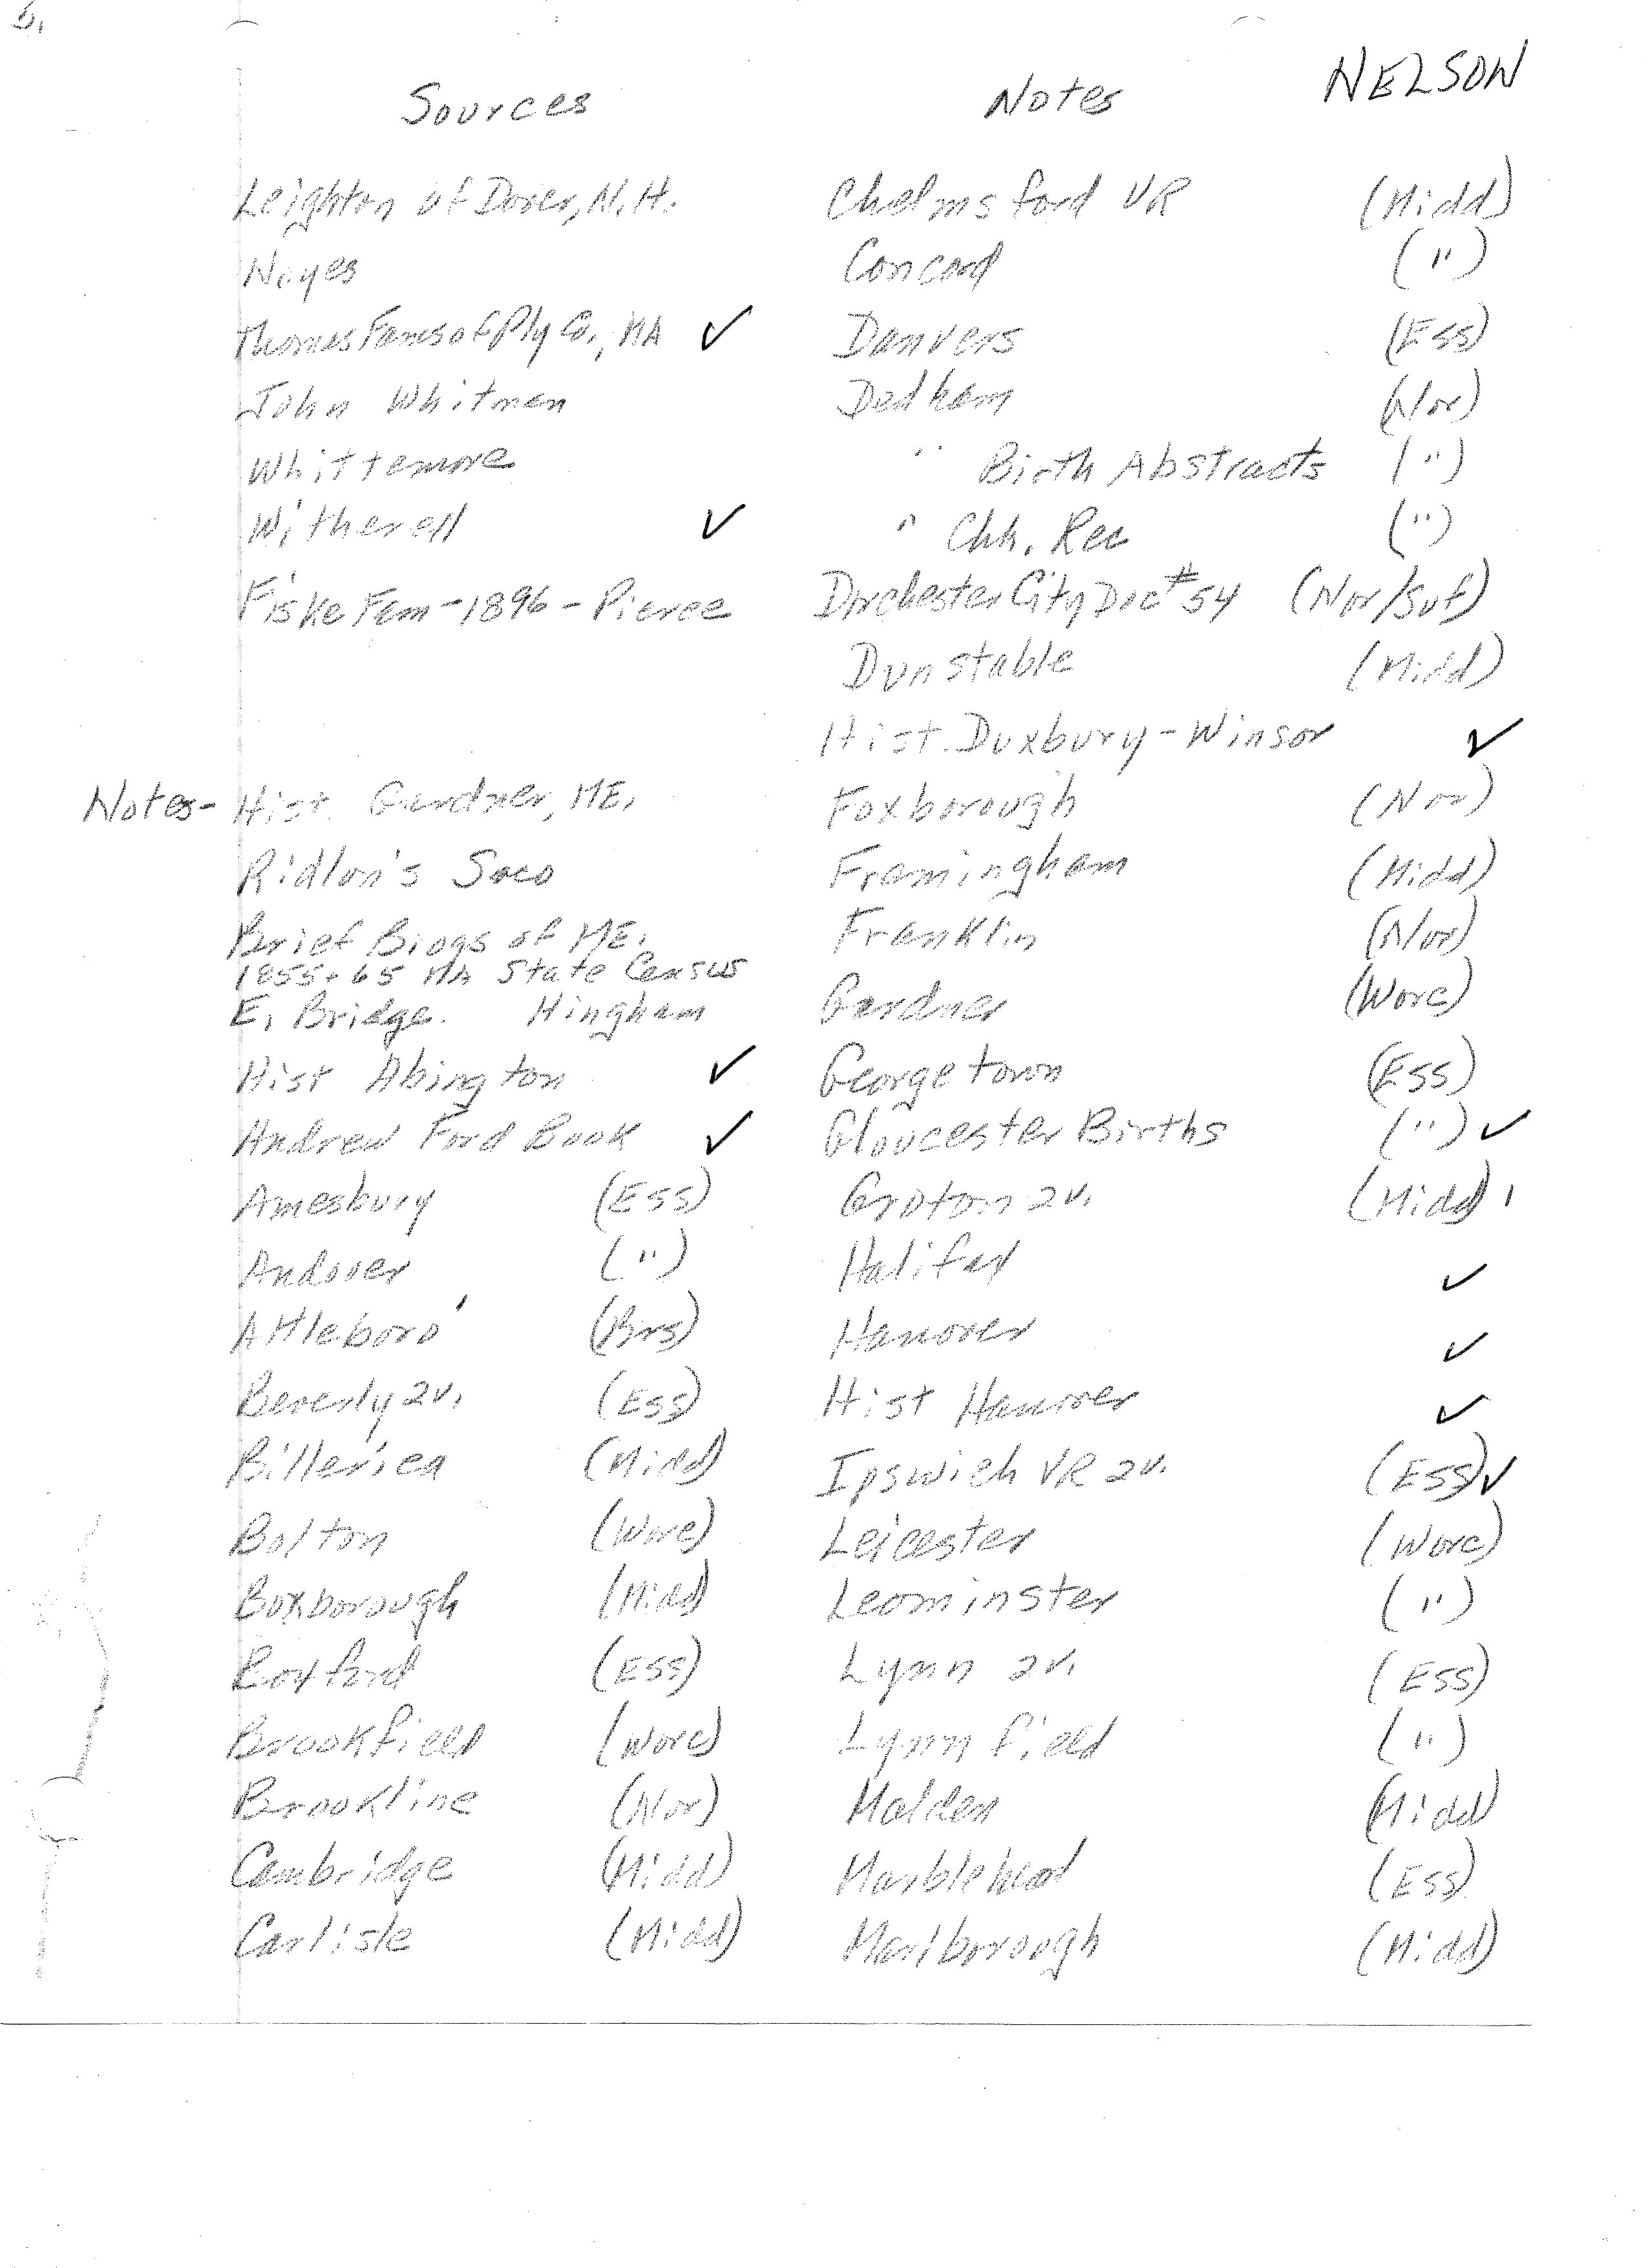 5.
NELSON
Sources
Notes
Leighton of Dover, N.H.
Noyes
Thomas Fams of Ply Co., MA ✓
John Whitman
Whittemore
Witherell ✓
Fiske Fam - 1896 - Pierce
Notes - Hist. Gardner, ME.
Ridlon's Saco
Brief Biogs of ME.
1855 + 65 MA State Census
E. Bridge. Hingham
Hist Abington ✓
Andrew Ford Book ✓
Amesbury (Ess)
Andover (")
Attleboro' (Brs)
Beverly 2v. (Ess)
Billerica (Midd)
Bolton (Worc)
Boxborough (Midd)
Boxford (Ess)
Brookfield (Worc)
Brookline (Nor)
Cambridge (Midd)
Carlisle (Midd)
Chelmsford VR (Midd)
Concord (")
Danvers (Ess)
Dedham (Nor)
" Birth Abstracts (")
" Chh. Rec (")
Dorchester City Doc #54 (Nor/Suf)
Dunstable (Midd)
Hist. Duxbury - Winsor ✓
Foxborough (Nor)
Framingham (Midd)
Franklin (Nor)
Gardner (Worc)
Georgetown (Ess)
Gloucester Births (") ✓
Groton 2v. (Midd)
Halifax ✓
Hanover ✓
Hist Hanover ✓
Ipswich VR 2v. (Ess) ✓
Leicester (Worc)
Leominster (")
Lynn 2v. (Ess)
Lynnfield (")
Malden (Midd)
Marblehead (Ess)
Marlborough (Midd)